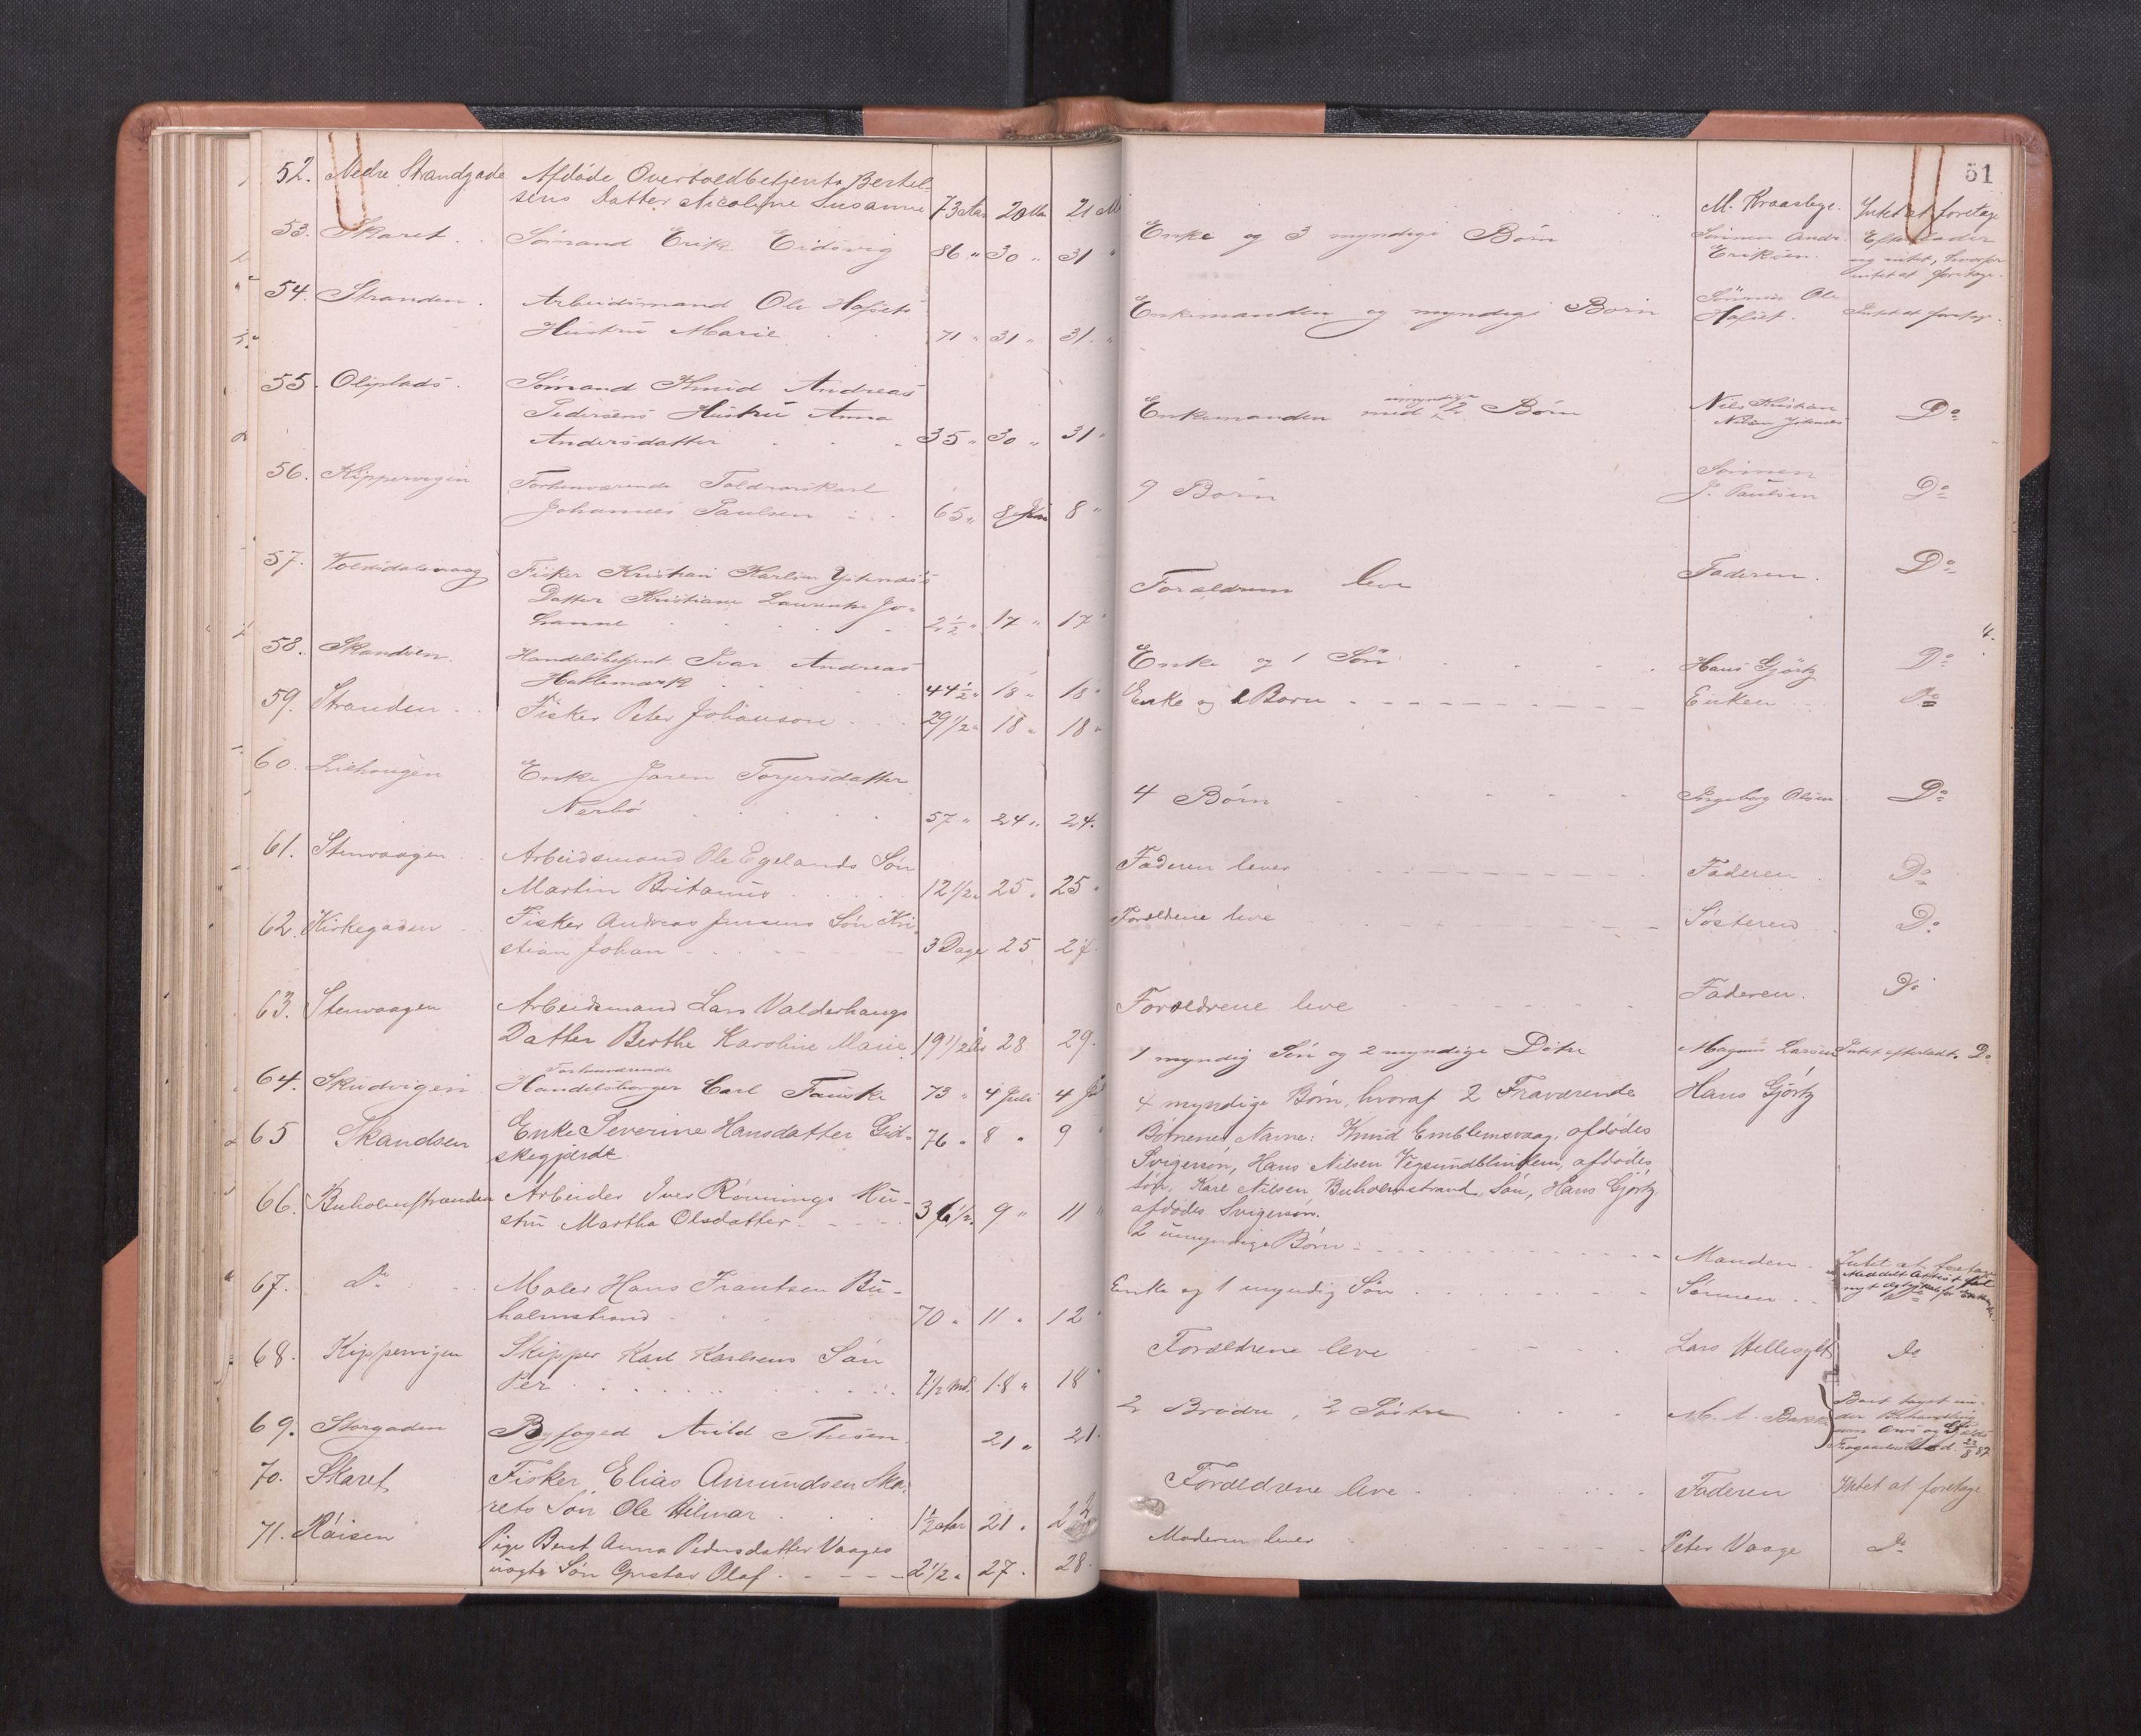 51
52. Nedre Strandgade Afdøde Overtoldbetjents Bertel-
sens Datter Nicoline Susanne 73 Aar 20 Mai 21 M M. Kraasbye. Intet at foretage
53. Skaret. Sømand Erik Eidsvig 86 " 30 " 31 " Enke og 3 myndige Børn Sønnen Andr. Eriksen. Efterlader
sig intet, hvorfor
intet at foretage.
54. Stranden. Arbeidsmand Ole Hofsets
Hustru Marie 71 " 31 " 31. " Enkemanden og myndige Børn Sønnen Ole
Hofset. Intet at foretage.
55. Olsplads. Sømand Knud Andreas
Pedersens Hustru Anna
Andersdatter 35 " 30 " 31 " Enkemanden med umyndige 2 Børn Nils Kristian
Nilsen Do
56. Kippervigen Forhenværende Toldrorskarl
Johannes Paulsen 65 " 8 Juni 8 " 9 Børn Sønnen
J. Paulsen Do
57. Voldsdalsvaag Fisker Kristian Karlsen Ystenes's
Datter Kristiane Laurentse Jo-
hanne 2 1/2 " 17 " 17 " Forældrene leve Faderen. Do
58. Skandsen. Handelsbetjent Ivar Andreas
Hatlemark 44 1/2 " 18 " 18 " Enke og 1 Søn Hans Gjørtz Do
4.
59. Stranden Fisker Peter Johanson 29 1/2 " 18 " 18 " Enke og 2 Børn Enken Do
60. Liehaugen Enke Joren Torgersdatter
Nerbø 57 " 24 " 24. 4 Børn Ingeborg Olsen Do
61. Stenvaagen Arbeidsmand Ole Egelands Søn
Martin Britanus 12 1/2 " 25 " 25 " Faderen lever Faderen Do
62. Kirkegaden Fisker Andreas Jensens Søn Kri-
stian Johan 3 Dage 25 27. Forældrene leve Søsteren Do
63. Stenvaagen Arbeidsmand Lars Valderhaugs
Datter Berthe Karoline Marie 19 1/2 År 28 29. Forældrene leve Faderen. Do
64. Skudvigen Forhenværende
Handelsborger Carl Fauske 73 " 4 Juli 4 Ju 1 myndig Søn og 2 myndige Døtre Magnus Larsen Intet efterladt. Do
65 Skandsen Enke Severine Hansdatter Gid-
skegjerde 76 " 8 " 9 " 4 myndige Børn, hvoraf 2 Fraværende Hans Gjørtz
Børnenes Navne: Knud Emblemsvaag, afdødes
Svigersøn, Hans Nilsen Vegsundblinkem, afdødes
søn, Karl Nilsen Buholmstrand, Søn, Hans Gjørtz,
afdødes Svigersøn.
66. Buholmstranden Arbeider Iver Rønnings Hu-
stru Martha Olsdatter 36 1/2 9 " 11 " 2 umyndige Børn Manden Intet at foretage
67. Do Maler Hans Frantsen Bu-
holmstrand 70 " 11 " 12 " Enke og 1 myndig Søn Sønnen Meddelt Attest
68. Kippervigen Skipper Karl Karlsens Søn
Per 7 1/2 Md. 18 " 18 " Forældrene leve Lars Hellesylt Do
69. Storgaden Byfoged Arild Thesen 21 " 21. 2 Brødre, 2 Søstre M. A. Bakke Boet taget un-
der Behandling
70. Skaret Fisker Elias Amundsen Ska-
rets Søn Ole Hilmar 1 1/2 Aar 21. 22 Forældrene leve Faderen Intet at foretage
71. Røisen Pige Berit Anna Pedersdatter Vaages
uægte Søn Gustav Olaf 2 1/2 " 27. 28. Moderen lever Peter Vaage Do